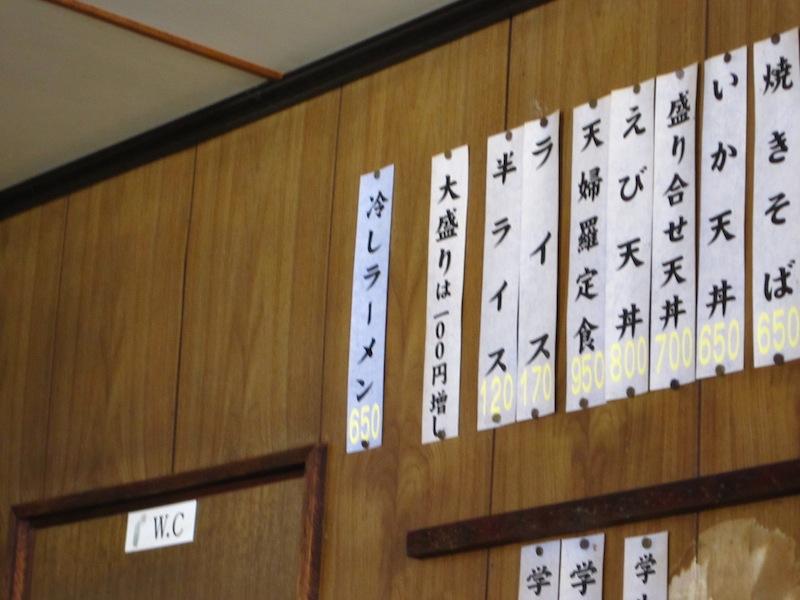 焼きそば 650
いか天丼 650
盛り合せ天丼 700
えび天丼 800
天婦羅定食 950
ライス 170
半ライス 120
大盛りは一00円増し
冷しラーメン 650
W.C
学
学
学